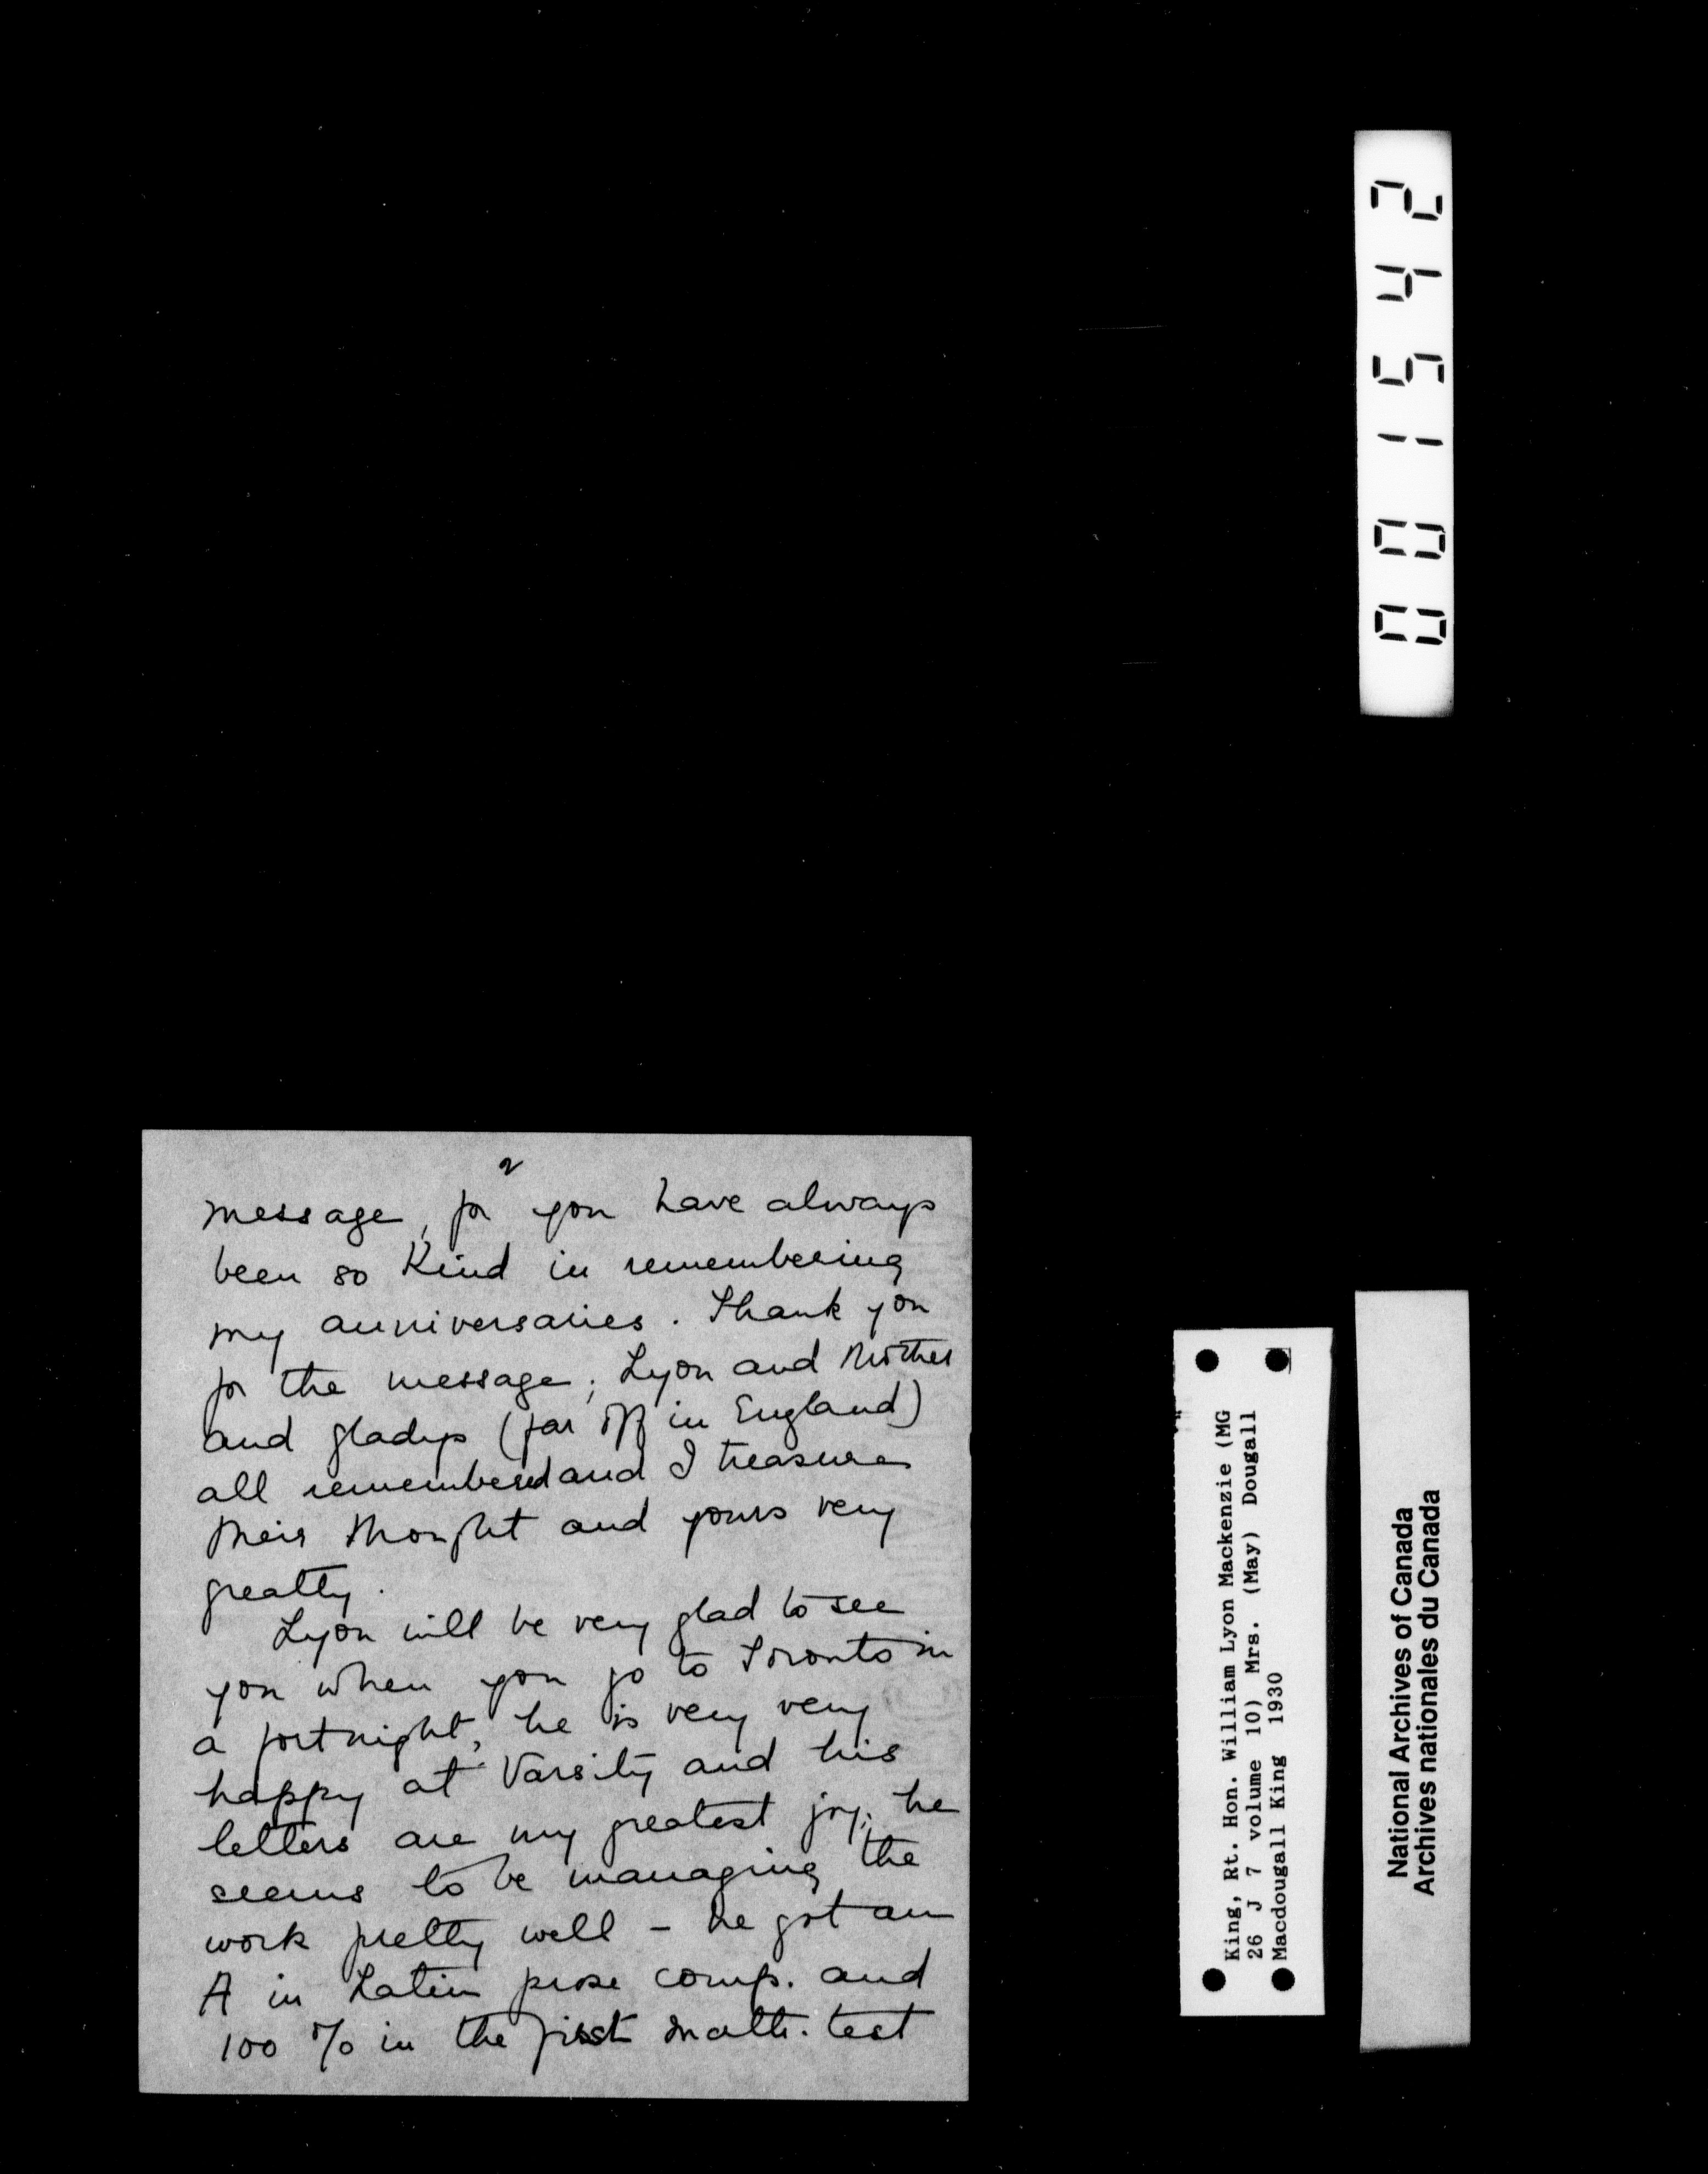 2
message, for you have always
been so kind in remembering
my anniversaries. Thank you
for the message; Lyon and Mother
and Gladys (far off in England)
all remembered and I treasure
their thought and yours very
greatly.
Lyon will be very glad to see
you when you go to Toronto in
a fortnight, he is very very
happy at Varsity and his
letters are my greatest joy; he
seems to be managing the
work pretty well - he got an
A in Latin prose comp. and
100 % in the first math. test
001542
King, Rt. Hon. William Lyon Mackenzie (MG
26 J 7 volume 10) Mrs. (May) Dougall
Macdougall King 1930
National Archives of Canada
Archives nationales du Canada